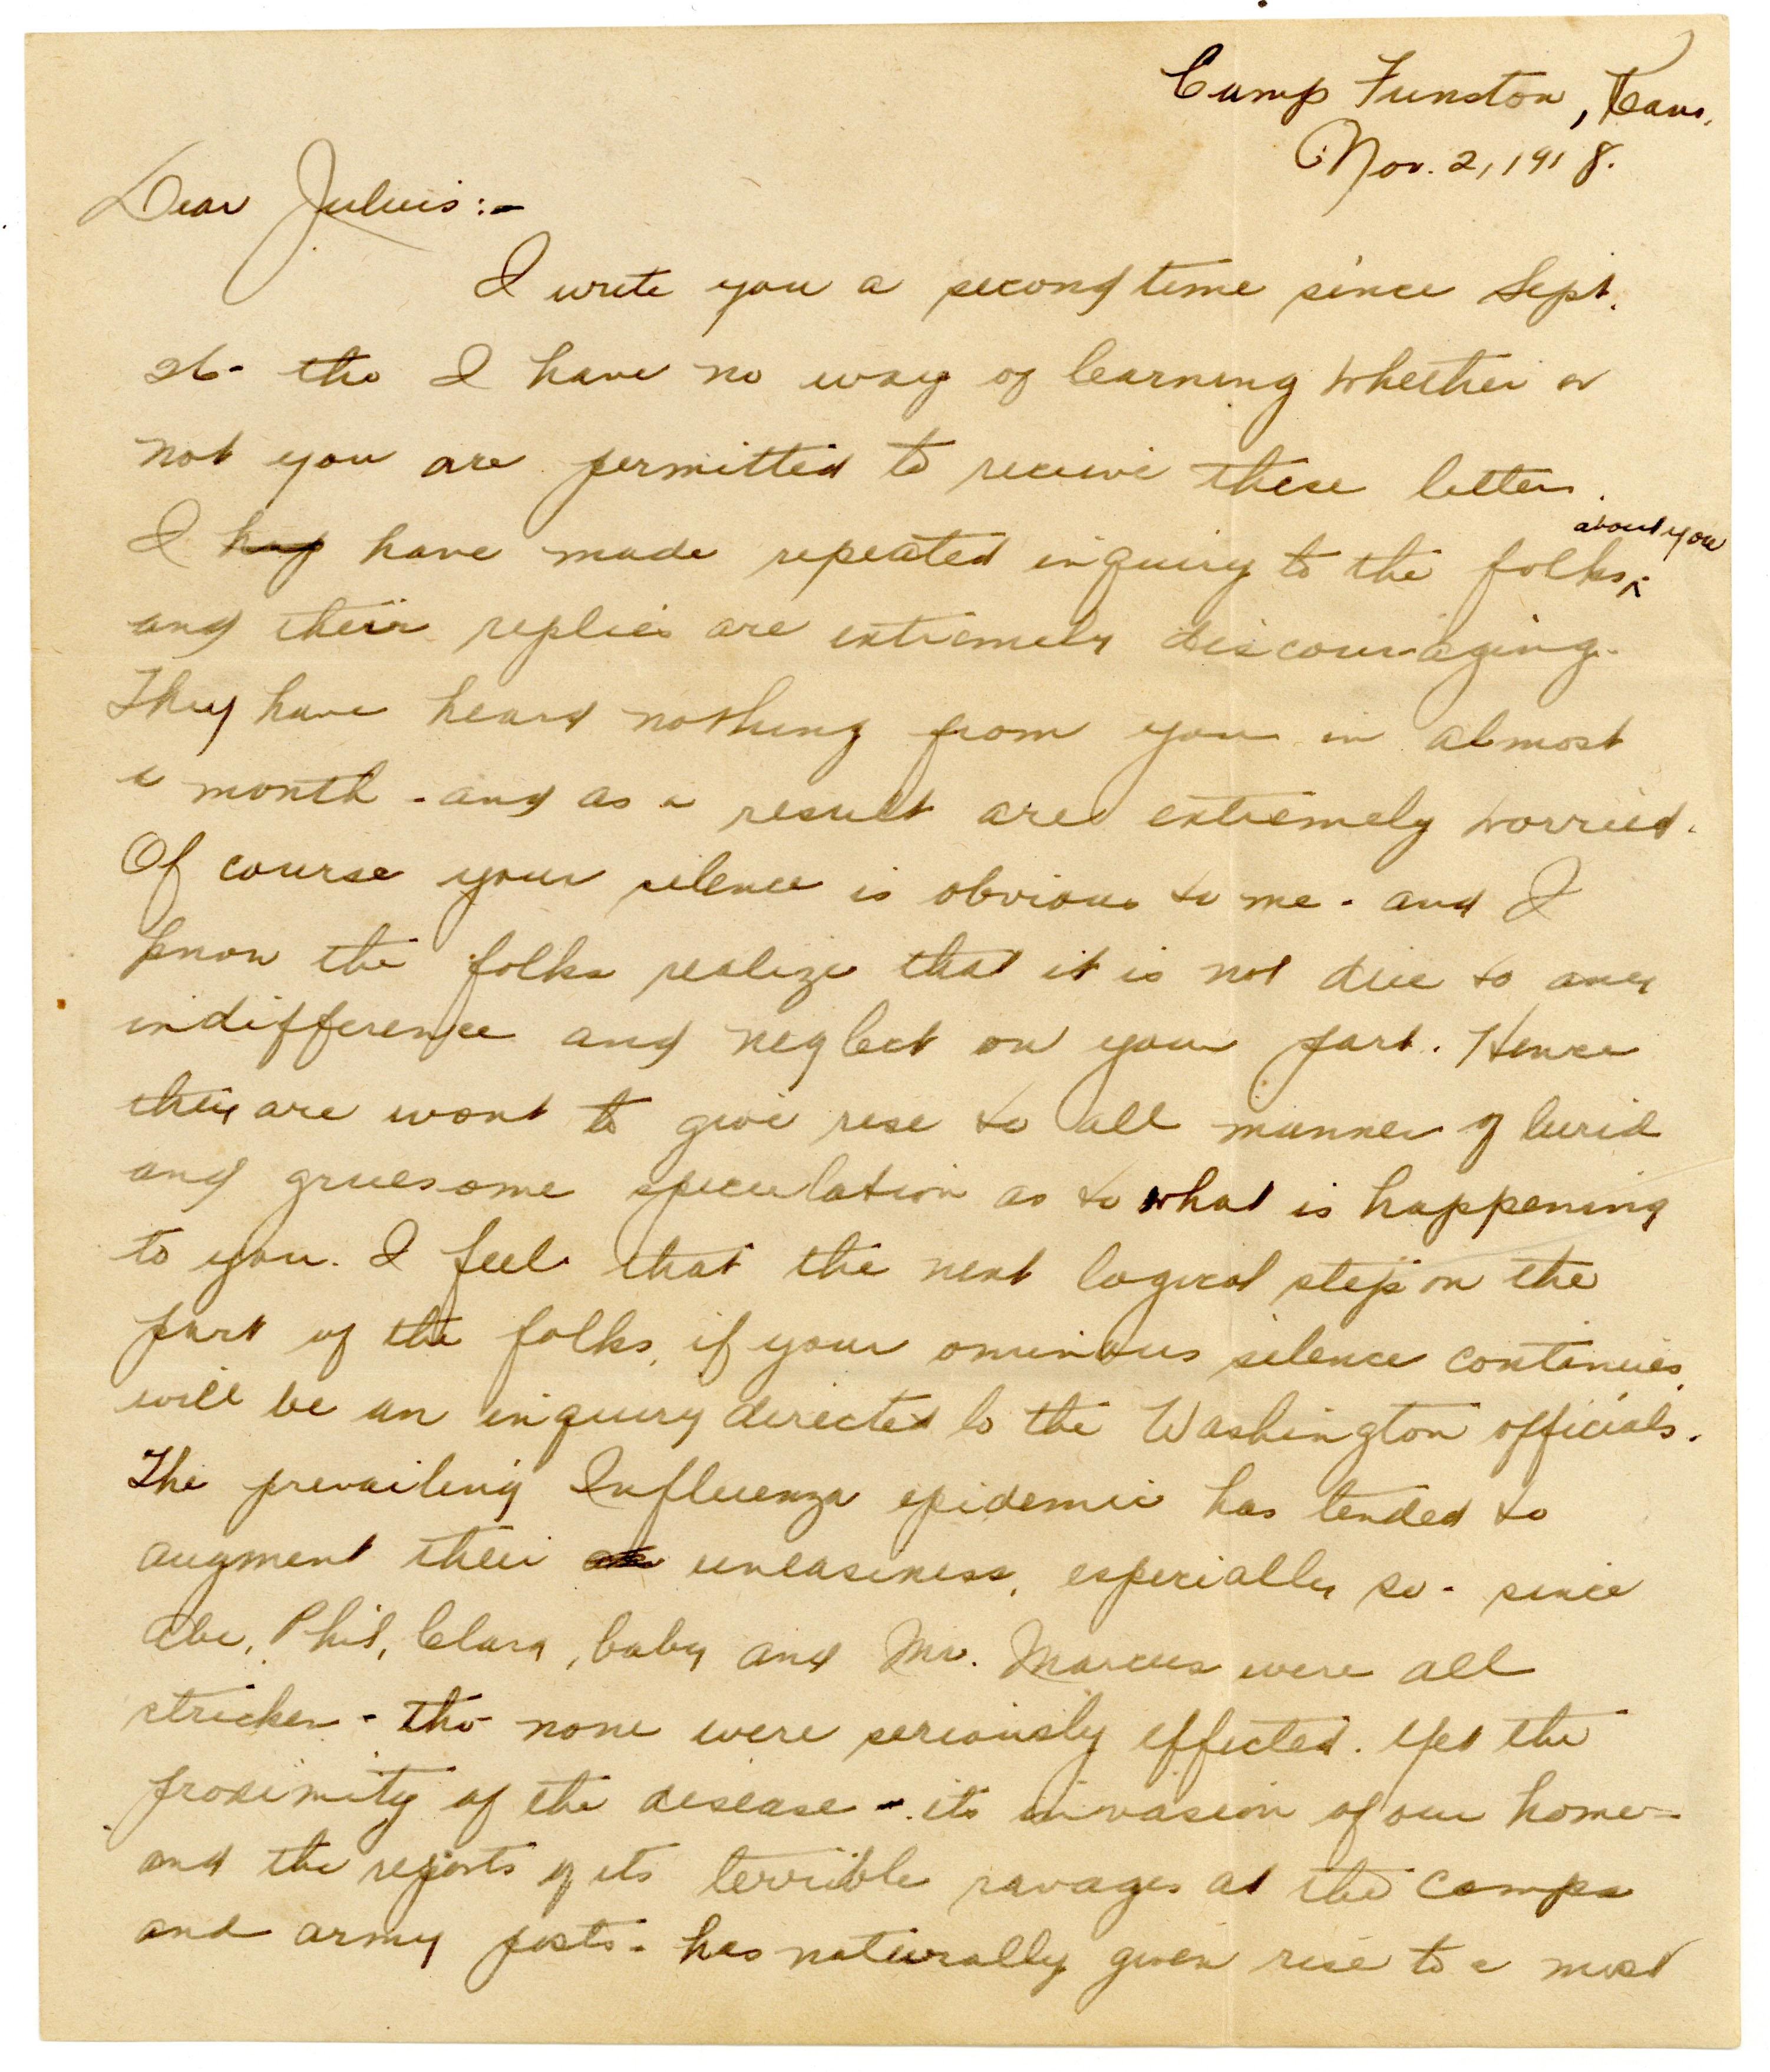 Camp Funston, Kans.
Nov. 2, 1918.
Dear Julius:-
I write you a second time since Sept.
26 - tho I have no way of learning whether or
not you are permitted to receive these letters.
I have made repeated inquiry to the folks about you
and their replies are extremely discouraging.
They have heard nothing from you in almost
a month - and as a result are extremely worried.
Of course your silence is obvious to me - and I
know the folks realize that it is not due to any
indifference and neglect on your part. Hence
they are wont to give rise to all manner of lurid
and gruesome speculation as to what is happening
to you. I feel that the next logical step on the
part of the folks, if your ominous silence continues,
will be an inquiry directed to the Washington officials.
The prevailing Influenza epidemic has tended to
augment their uneasiness, especially so - since
Abe, Phil, Clara, baby and Mr. Marcus were all
stricken - tho none were seriously effected. Yet the
proximity of the disease - its invasion of our home -
and the reports of its terrible ravages at the camps
and army posts - has naturally given rise to a most